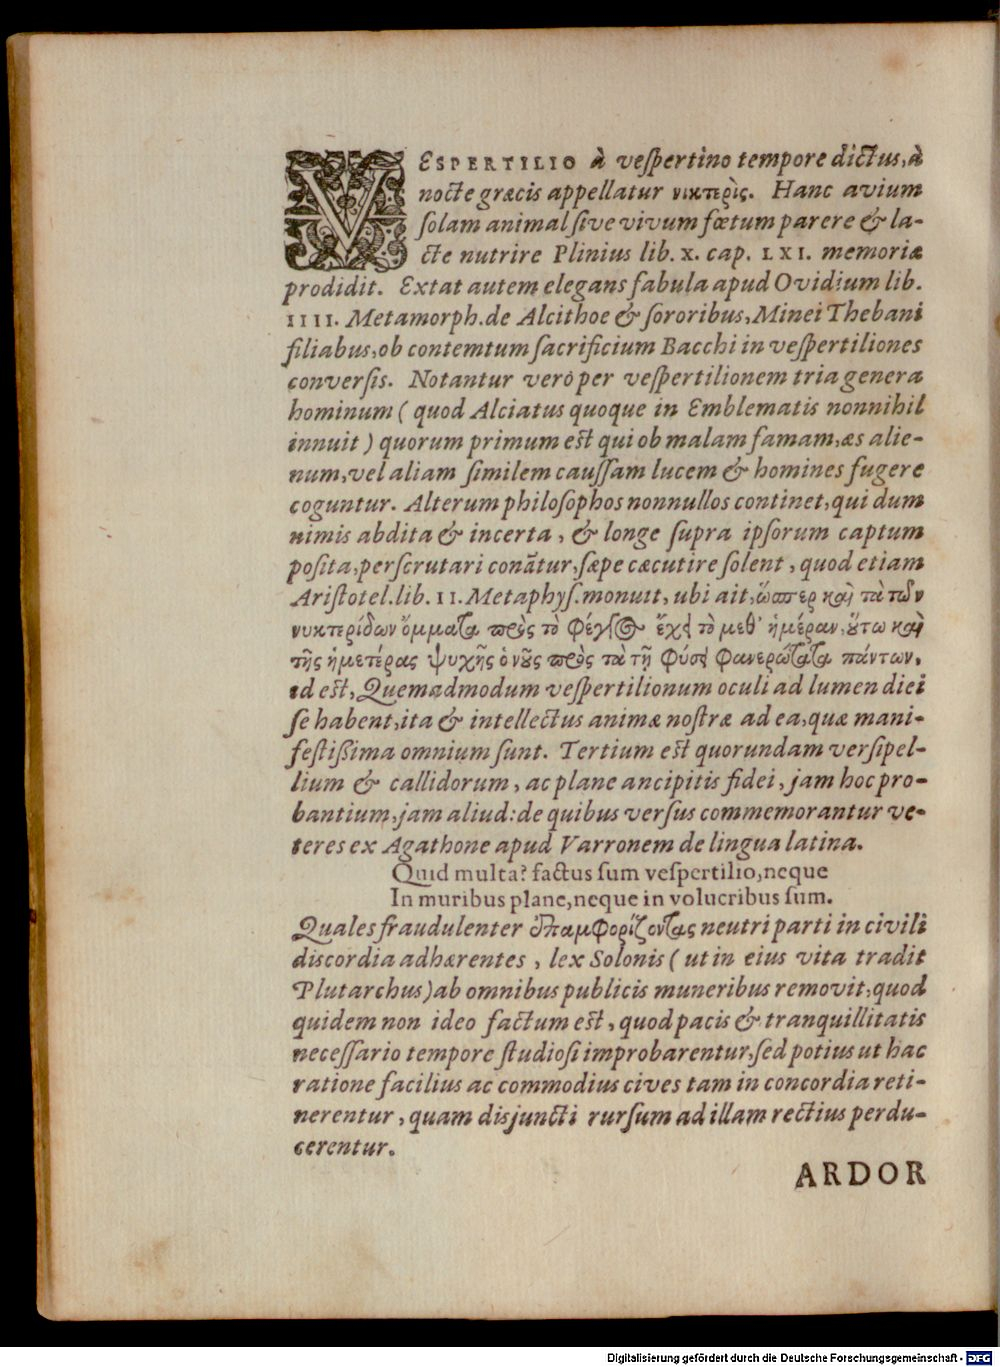 VESPERTILIO à veſpertino tempore dictus, à
nocte græcis appellatur νικτερὶς. Hanc avium
ſolam animal ſive vivum fœtum parere & la-
cte nutrire Plinius lib. X. cap. LXI. memoriæ
prodidit. Extat autem elegans fabula apud Ovidium lib.
IIII. Metamorph. de Alcithoe & ſororibus, Minei Thebani
filiabus, ob contemtum ſacrificium Bacchi in veſpertiliones
converſis. Notantur verò per veſpertilionem tria genera
hominum ( quod Alciatus quoque in Emblematis nonnihil
innuit ) quorum primum eſt qui ob malam famam, æs alie-
num, vel aliam ſimilem cauſſam lucem & homines fugere
coguntur. Alterum philoſophos nonnullos continet, qui dum
nimis abdita & incerta, & longe ſupra ipſorum captum
poſita, perſcrutari conãtur, ſæpe cæcutire ſolent, quod etiam
Ariſtotel. lib. II. Metaphyſ. monuit, ubi ait, ὥσπερ καὶ τὰ τῶν
νυκτερίδων ὄμματα πρὸς τὸ φέγγος ἔχει τὸ μεθ' ἡμέραν, ὕτω καὶ
τῆς ἡμετέρας ψυχῆς ὁ νῦς πρὸς τὰ τῇ φύσει φανερώτατα πάντων,
id eſt, Quemadmodum veſpertilionum oculi ad lumen diei
ſe habent, ita & intellectus animæ noſtræ ad ea, quæ mani-
feſtißima omnium ſunt. Tertium eſt quorundam verſipel-
lium & callidorum, ac plane ancipitis fidei, jam hoc pro-
bantium, jam aliud: de quibus verſus commemorantur ve-
teres ex Agathone apud Varronem de lingua latina.
Quid multa? factus ſum veſpertilio, neque
In muribus plane, neque in volucribus ſum.
Quales fraudulenter ἐπαμφορίζοντας neutri parti in civili
diſcordia adhærentes, lex Solonis ( ut in eius vita tradit
Plutarchus) ab omnibus publicis muneribus removit, quod
quidem non ideo factum eſt, quod pacis & tranquillitatis
neceſſario tempore ſtudioſi improbarentur, ſed potius ut hac
ratione facilius ac commodius cives tam in concordia reti-
nerentur, quam disjuncti rurſum ad illam rectius perdu-
cerentur.
ARDOR
Digitalisierung gefördert durch die Deutsche Forschungsgemeinschaft - DFG